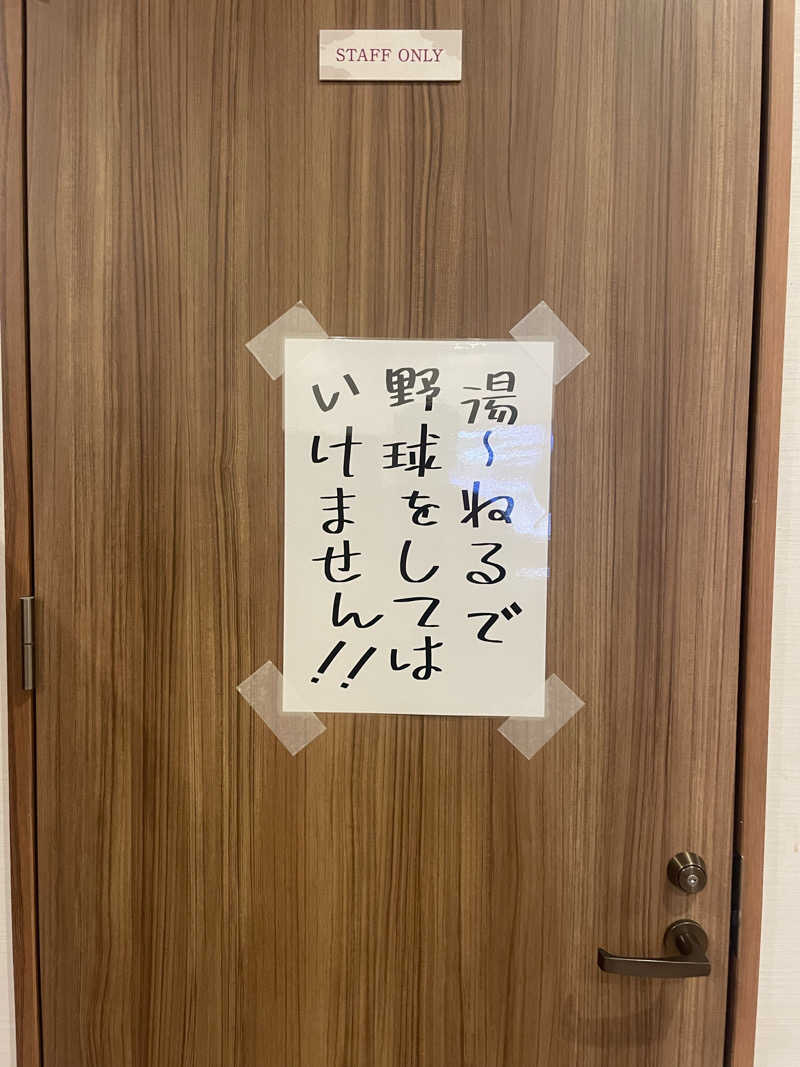 STAFF ONLY
湯〜ねるで
野球をしては
いけません!!